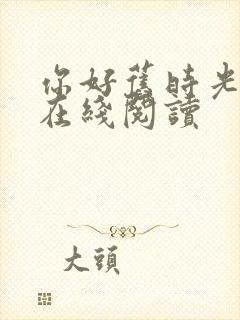 你好舊時光
在綫閱讀
大頭